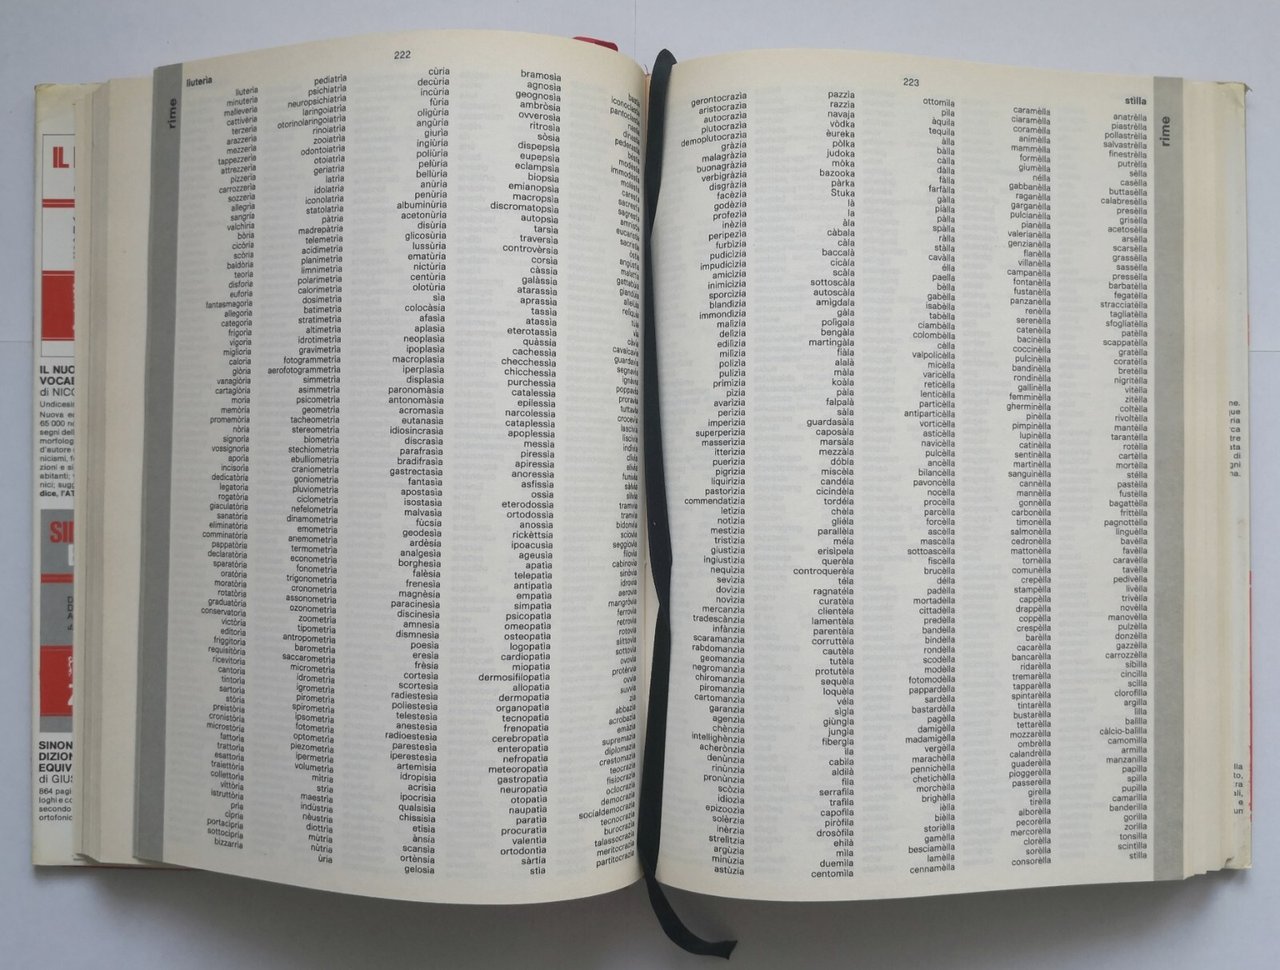 222
liuteria
rime
liuteria
minuteria
malleveria
cattivèria
terzeria
arazzeria
mezzeria
tappezzeria
attrezzeria
pizzeria
carrozzeria
sozzeria
allegria
sangria
valchiria
bòria
cicòria
scòria
baldòria
teoria
disforia
euforia
fantasmagoria
allegoria
categoria
frigoria
vigoria
migliorìa
caloria
glòria
vanaglòria
cartaglòria
moria
memòria
promemòria
nòria
signoria
vossignoria
aporia
incisoria
dedicatòria
legatoria
rogatòria
giaculatòria
sanatòria
eliminatòria
comminatòria
pappatòria
declaratòria
sparatòria
oratòria
moratòria
rotatòria
graduatòria
conservatoria
victòria
editoria
friggitoria
requisitòria
ricevitoria
cantoria
tintoria
sartoria
stòria
preistòria
cronistòria
microstòria
fattoria
trattoria
esattoria
traiettòria
collettoria
vittòria
istruttòria
pria
cipria
portacipria
sottocipria
bizzarria
pediatria
psichiatria
neuropsichiatria
laringoiatria
otorinolaringoiatria
rinoiatria
zooiatria
odontoiatria
otoiatria
geriatria
latria
idolatria
iconolatria
statolatria
pàtria
madrepàtria
telemetria
acidimetria
planimetria
limnimetria
polarimetria
calorimetria
dosimetria
batimetria
stratimetria
altimetria
idrotimetria
gravimetria
fotogrammetria
aerofotogrammetria
simmetria
asimmetria
psicometria
geometria
tacheometria
stereometria
biometria
stechiometria
ebulliometria
craniometria
goniometria
pluviometria
ciclometria
nefelometria
dinamometria
emometria
anemometria
termometria
econometria
fonometria
trigonometria
cronometria
assonometria
ozonometria
zoometria
tipometria
antropometria
barometria
saccarometria
micrometria
idrometria
igrometria
pirometria
spirometria
ipsometria
fotometria
optometria
piezometria
ipermetria
volumetria
mitria
stria
maestria
indùstria
nèustria
diottria
mùtria
nùtria
ùria
cùria
decùria
incùria
fùria
oligùria
angùria
giuria
ingiùria
poliùria
pelùria
bellùria
anùria
penùria
albuminùria
acetonùria
disùria
glicosùria
lussùria
ematùria
nictùria
centùria
olotùria
sia
colocàsia
afasia
aplasia
neoplasia
ipoplasia
macroplasia
iperplasia
displasia
paronomàsia
antonomàsia
acromasia
eutanasia
idiosincrasia
discrasia
parafrasia
bradifrasia
gastrectasia
fantasia
apostasia
isostasia
malvasia
fùcsia
geodesia
ardèsia
analgesia
borghesia
falèsia
frenesia
magnèsia
paracinesia
discinesia
amnesia
dismnesia
poesia
eresia
frèsia
cortesia
scortesia
radiestesia
poliestesia
telestesia
anestesia
radioestesia
parestesia
iperestesia
artemisia
idropisia
acrisia
ipocrisia
qualsìsia
chissisia
etisia
ànsia
scansia
ortènsia
gelosia
bramosia
agnosia
geognosia
ambròsia
ovverosia
ritrosia
sòsia
dispepsia
eupepsia
eclampsia
biopsia
emianopsia
macropsia
discromatopsia
autopsia
tarsia
traversia
controvèrsia
corsia
càssia
galàssia
atarassia
aprassia
tassia
atassia
eterotassia
quàssia
cachessia
checchessia
chicchessia
purchessia
catalessia
epilessia
narcolessia
cataplessia
apoplessia
messia
piressia
apiressia
anoressia
asfissia
ossia
eterodossia
ortodossia
anossia
rickèttsia
ipoacusia
ageusia
apatia
telepatia
antipatia
empatia
simpatia
psicopatia
omeopatia
osteopatia
logopatia
cardiopatia
miopatia
dermosifilopatia
allopatia
dermopatia
organopatia
tecnopatia
frenopatia
cerebropatia
enteropatia
nefropatia
meteoropatia
gastropatia
neuropatia
otopatia
naupatia
paratia
procuratia
valentia
ortodontia
sàrtia
stia
zia
abbazia
acrobazia
emàzia
supremazia
diplomazia
crestomazia
teocrazia
fisiocrazia
oclocrazia
democrazia
socialdemocrazia
tecnocrazia
burocrazia
talassocrazia
meritocrazia
partitocrazia
223
stilla
rime
gerontocrazia
aristocrazia
autocrazia
plutocrazia
demoplutocrazia
gràzia
malagràzia
buonagràzia
verbigràzia
disgràzia
facèzia
godèzia
profezia
inèzia
peripezia
furbizia
pudicizia
impudicizia
amicizia
inimicizia
sporcizia
blandizia
immondizia
malizia
delizia
edilizia
milizia
polizia
pulizia
primizia
pizia
avarizia
perizia
imperizia
superperizia
masserizia
itterizia
puerizia
pigrizia
liquirizia
pastorizia
commendatizia
letizia
notizia
mestizia
tristizia
giustizia
ingiustizia
nequizia
sevizia
dovizia
novizia
mercanzia
tradescànzia
infànzia
scaramanzia
rabdomanzia
geomanzia
negromanzia
chiromanzia
piromanzia
cartomanzia
garanzia
agenzia
chènzia
intelligènzia
acherònzia
denùnzia
rinùnzia
pronùnzia
scòzia
idiozia
epizoozia
solèrzia
inèrzia
strelitzia
argùzia
minùzia
astùzia
pazzia
razzia
navaja
vòdka
èureka
pòlka
judoka
mòka
bazooka
pàrka
Stuka
là
la
àla
càbala
càla
baccalà
cicàla
scàla
sottoscàla
autoscàla
amigdala
gàla
polìgala
bengàla
martingàla
fiàla
alalà
màla
koàla
pàla
falpalà
sàla
guardasàla
caposàla
marsàla
mezzàla
dóbla
miscèla
candéla
cicindèla
tordéla
chèla
glièla
parallèla
méla
erisìpela
querèla
controquerèla
téla
ragnatéla
curatèla
clientèla
lamentèla
parentèla
corruttèla
cautèla
tutèla
protutèla
sequèla
loquèla
véla
sìgla
giùngla
jungla
fibergla
ila
cabila
aldilà
fila
serrafila
trafila
capofila
piròfila
drosòfila
ehilà
mila
duemila
centomila
ottomila
pila
àquila
tequila
àlla
bàlla
càlla
dàlla
fàlla
farfàlla
gàlla
piàlla
pàlla
spàlla
ràlla
stàlla
cavàlla
élla
paella
bèlla
gabèlla
isabèlla
tabèlla
ciambèlla
colombèlla
cèlla
valpolicèlla
micèlla
varicèlla
reticèlla
lenticèlla
particèlla
antiparticèlla
vorticèlla
asticèlla
navicèlla
pulcèlla
ancèlla
bilancèlla
pavoncèlla
nocèlla
procèlla
parcèlla
forcèlla
ascèlla
mascèlla
sottoascèlla
fiscèlla
brucèlla
délla
padèlla
mortadèlla
cittadèlla
predèlla
bandèlla
bindèlla
rondèlla
scodèlla
fotomodèlla
pappardèlla
sardèlla
bastardèlla
pagèlla
damigèlla
madamigèlla
vergèlla
marachèlla
pennichèlla
chetichèlla
morchèlla
brighèlla
ièlla
bièlla
storièlla
gamèlla
besciamèlla
lamèlla
cennamèlla
caramèlla
ciaramèlla
coramèlla
animèlla
mammèlla
formèlla
giumèlla
nélla
gabbanèlla
raganèlla
garganèlla
pulcianèlla
pianèlla
valerianèlla
genzianèlla
flanèlla
villanèlla
campanèlla
fontanèlla
fustanèlla
panzanèlla
renèlla
serenèlla
catenèlla
bacinèlla
coccinèlla
pulcinèlla
bandinèlla
rondinèlla
gallinèlla
femminèlla
gherminèlla
pinèlla
pimpinèlla
lupinèlla
catinèlla
sentinèlla
martinèlla
sanguinèlla
cannèlla
mannèlla
gonnèlla
carbonèlla
timonèlla
salmonèlla
cedronèlla
mattonèlla
tornèlla
comunèlla
crepèlla
stampèlla
cappèlla
drappèlla
coppèlla
crespèlla
barèlla
cacarèlla
bancarèlla
ridarèlla
tremarèlla
tapparèlla
spintarèlla
tintarèlla
bustarèlla
tettarèlla
mozzarèlla
ombrèlla
calandrèlla
quaderèlla
pioggerèlla
passerèlla
girèlla
tirèlla
alborèlla
pecorèlla
mercorèlla
clorèlla
sorèlla
consorèlla
anatrèlla
piastrèlla
pollastrèlla
salvastrèlla
finestrèlla
putrèlla
sèlla
casèlla
buttasèlla
calabresèlla
presèlla
grisèlla
acetosèlla
arsèlla
scarsèlla
grassèlla
sassèlla
pressèlla
barbatèlla
fegatèlla
stracciatèlla
tagliatèlla
sfogliatèlla
patèlla
scappatèlla
gratèlla
coratèlla
bretèlla
nigritèlla
vitèlla
zitèlla
coltèlla
rivoltèlla
mantèlla
tarantèlla
rotèlla
cartèlla
mortèlla
stélla
pastèlla
fustèlla
bagattèlla
frittèlla
pagnottèlla
linguèlla
bavèlla
favèlla
caravèlla
tavèlla
pedivèlla
livèlla
trivèlla
novèlla
manovèlla
pulzèlla
donzèlla
gazzèlla
carrozzèlla
sibilla
cincilla
scilla
clorofilla
argilla
lilla
balilla
càlcio-balilla
camomilla
armilla
manzanilla
papilla
spilla
pupilla
camarilla
banderilla
gorilla
zorilla
tonsilla
scintilla
stilla